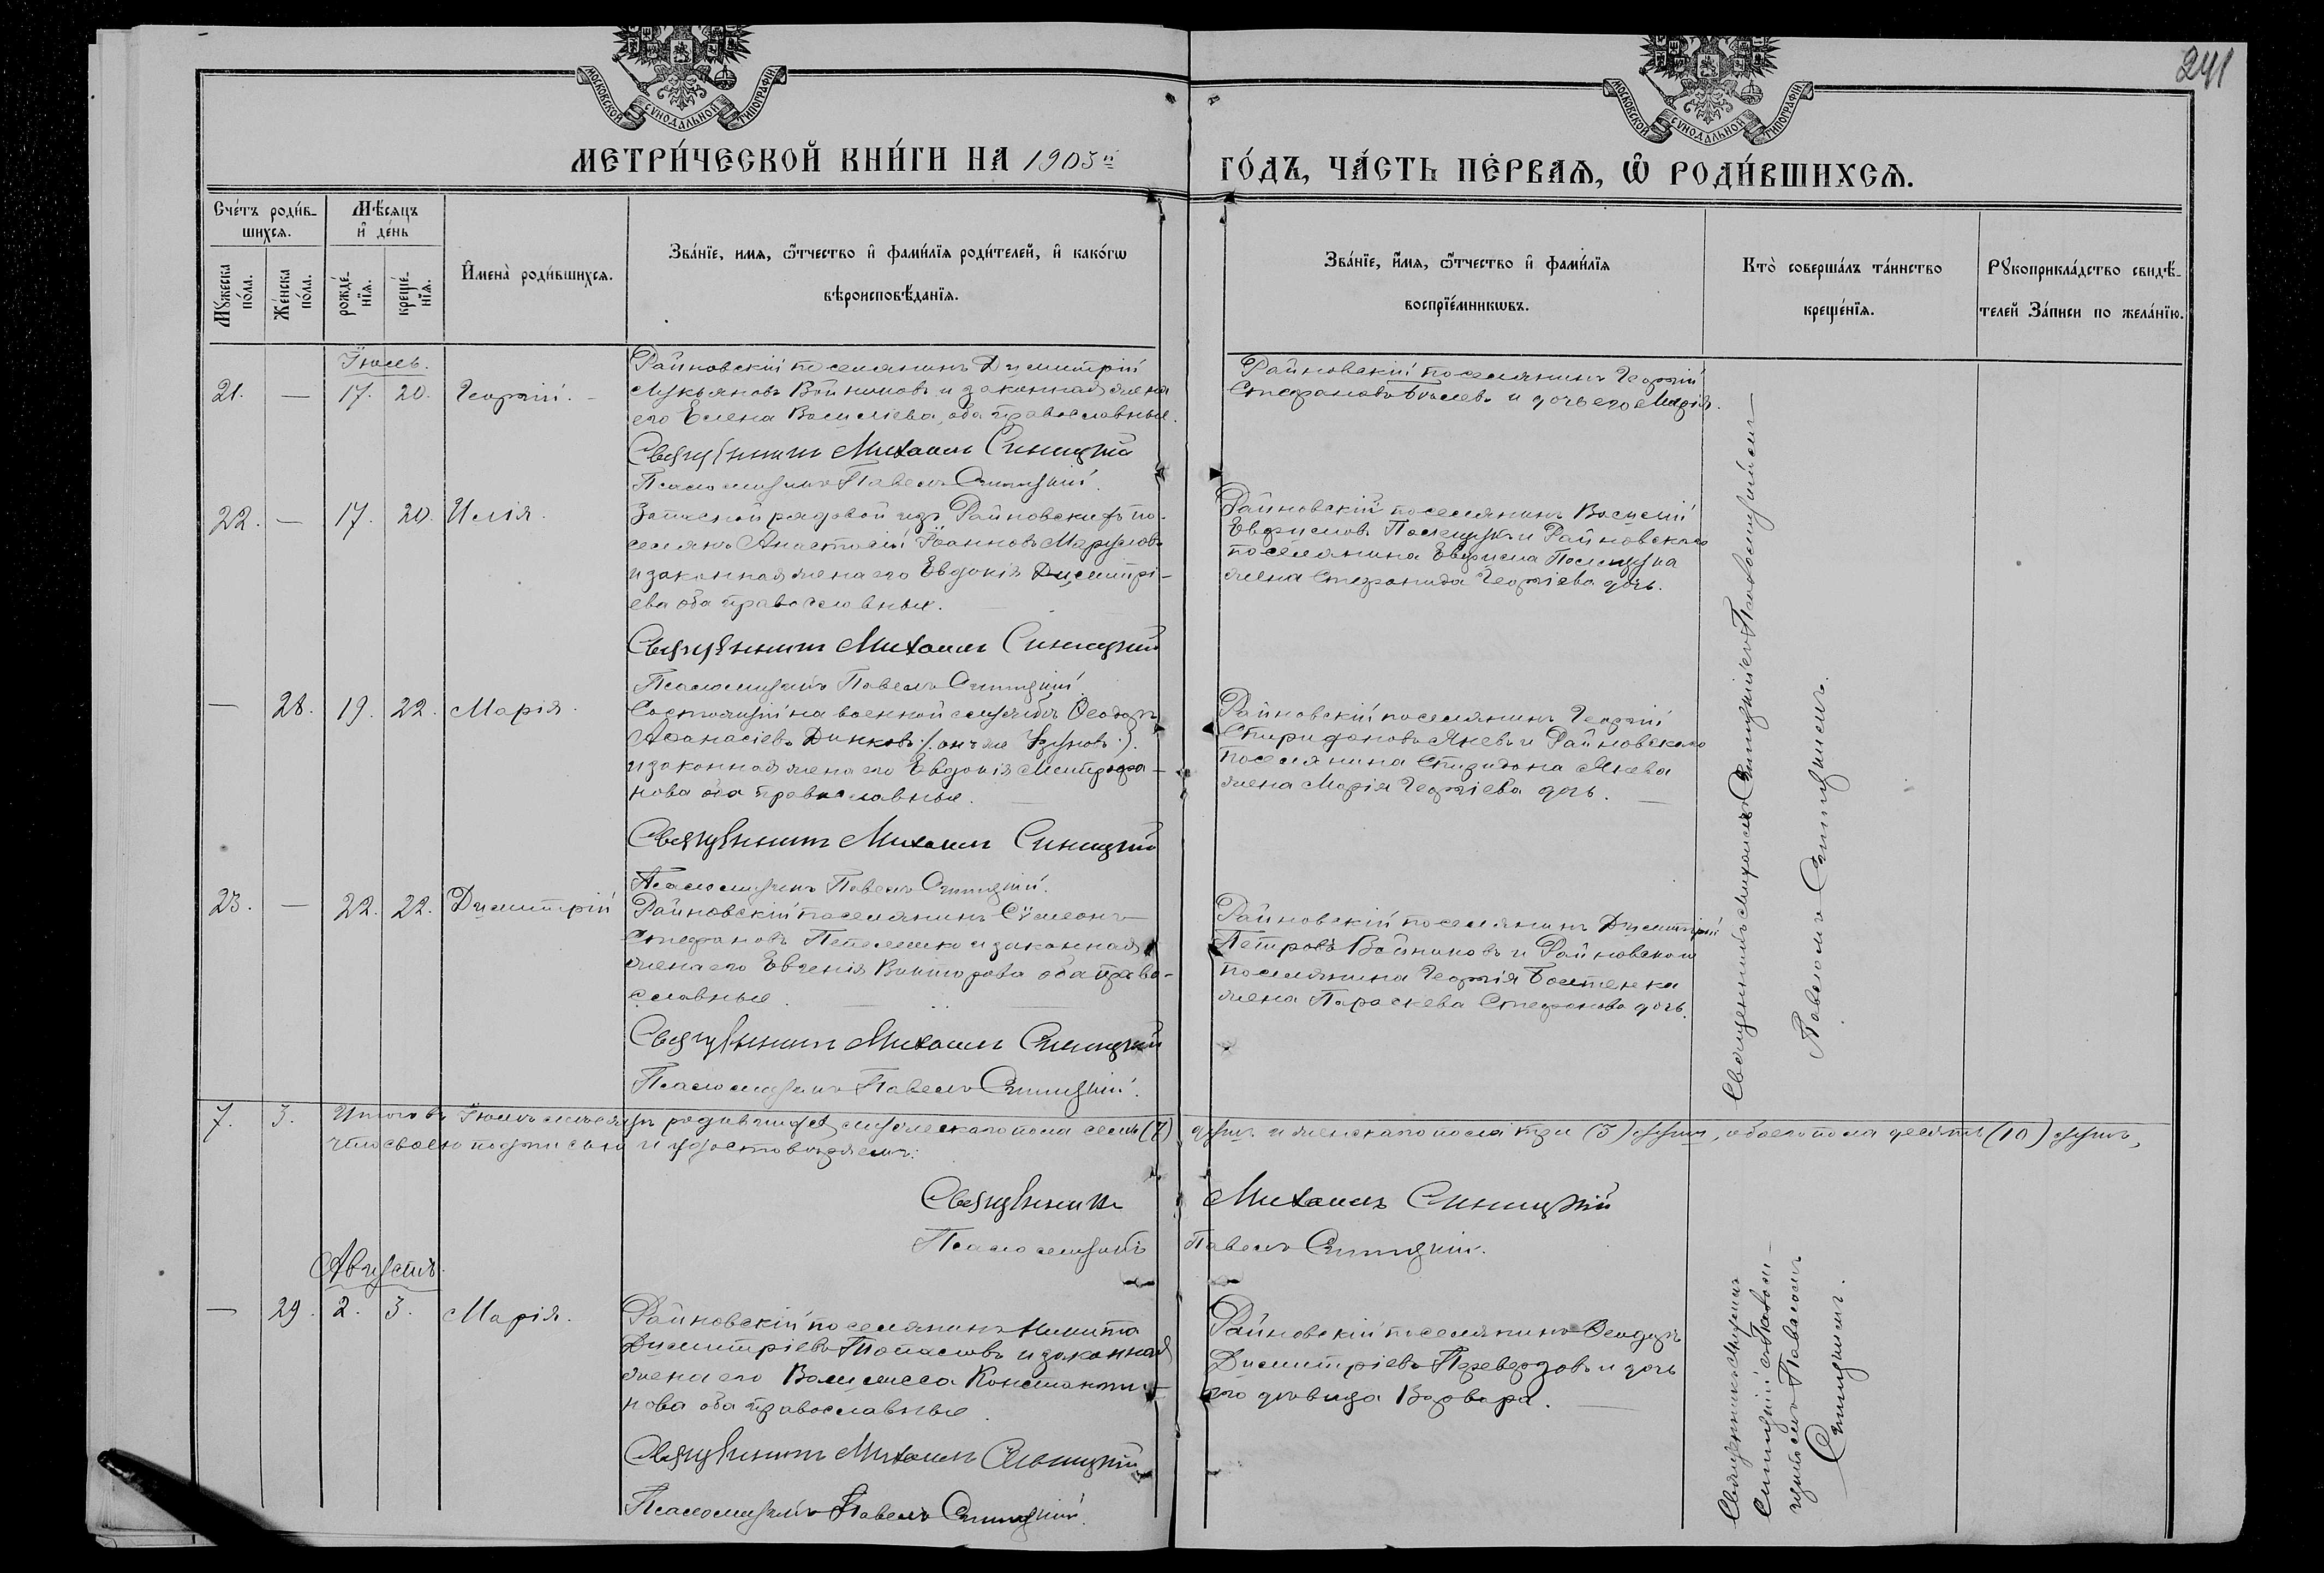 241
МОСКОВСКОЙ СѴНОДАЛЬНОЙ ТИПОГРАФІИ
МОСКОВСКОЙ СѴНОДАЛЬНОЙ ТИПОГРАФІИ
МЕТРИ́ЧЕСКОЙ КНИ́ГИ НА 1903й
ГО́ДЪ, ЧА́СТЬ ПЕ́РВАѦ, Ѽ РОДИ́ВШИХСѦ.
Сче́тъ роди́в-
шихсѧ.
Мꙋжеска по́ла.
Же́нска по́ла.
Мѣ́сѧцъ
и҆ де́нь
рожде́-нїѧ.
креще́-нїѧ.
И҆мена̀ роди́вшихсѧ.
Зва́нїе, имѧ, ѻ҆́тчество и҆ фами́лїѧ роди́телей, и҆ како́гѡ
вѣроисповѣ́данїѧ.
Зва́нїе, и҆́мѧ, ѻ҆́тчество и҆ фами́лїѧ
воспрїе́мникѡвъ.
Кто̀ соверша́лъ та́инство
креще́нїѧ.
Рꙋкоприкла́дство свидѣ́-
телей За́писи по жела́нїю.
Іюль.
21. — 17. 20. Георгій. -
Райновскій поселянинъ Димитрій
Лукьяновъ Войниковъ и законная жена
его Елена Василіева, оба православные.
Священникъ Михаилъ Синицкій
Псаломщикъ Павелъ Синицкій.
Райновскій поселянинъ Георгій
Стефановъ и дочь его Марія.
22. — 17. 20. Илія.
Запасной рядовой изъ Райновскихъ по-
селянъ Анастасій Іоанновъ
и законная жена его Евдокія Димитрі-
ева оба православные.
Священникъ Михаилъ Синицкій
Псаломщикъ Павелъ Синицкій.
Райновскій поселянинъ Василій
и Райновскаго
поселянина
жена Стефанида Георгіева дочь.
— 28. 19. 22. Марія.
Состоящій на военной службѣ Ѳеодоръ
Аѳанасіевъ Динковъ /: онъ же :/.
и законная жена его Евдокія Митрофа-
нова оба православные.
Священникъ Михаилъ Синицкій
Псаломщикъ Павелъ Синицкій.
Райновскій поселянинъ Георгій
Спиридоновъ Яневъ и Райновскаго
поселянина Спиридона Янева
жена Марія Георгіева дочь.
23. — 22. 22. Димитрій
Райновскій поселянинъ Сѵмеонъ
Стефановъ и законная
жена его Евгенія Викторова оба право-
славные.
Священникъ Михаилъ Синицкій
Псаломщикъ Павелъ Синицкій.
Райновскій поселянинъ Димитрій
Петровъ Войниковъ и Райновскаго
поселянина Георгія
жена Параскева Стефанова дочь.
Священникъ Михаилъ Синицкій съ Псаломщикомъ
Павломъ Синицкимъ.
7. 3. Итого въ Іюлѣ мѣсяцѣ родившихся мужескаго пола семь (7) душъ и женскаго пола три (3) души, обоего пола десять (10) душъ,
что своею подписью и удостовѣряемъ:
Священникъ Михаилъ Синицкій
Псаломщикъ Павелъ Синицкій.
Августъ.
— 29. 2. 3. Марія.
Райновскій поселянинъ Никита
Димитріевъ и законная
жена его Василисса Константи-
нова оба православные.
Священникъ Михаилъ Синицкій
Псаломщикъ Павелъ Синицкій.
Райновскій поселянинъ Ѳеодоръ
Димитріевъ и дочь
его дѣвица Варвара.
Священникъ Михаилъ
Синицкій съ Псалом-
щикомъ Павломъ
Синицкимъ.